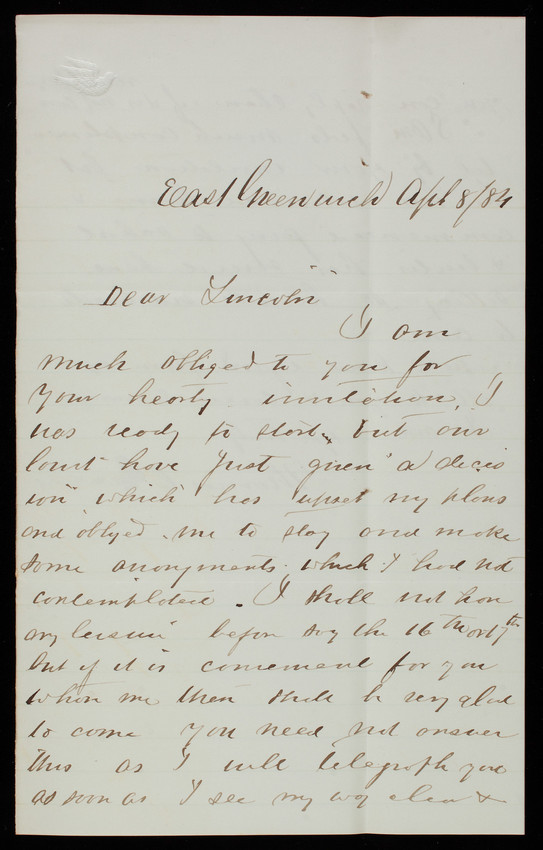 East Greenwich Apl 8/84
Dear Lincoln
I am
much obliged to you for
your hearty invitation, I
was ready to start, but our
Court have just given a decis
ion which has upset my plans
and obliged me to stay and make
some arrangements which I had not
contemplated. I shall not have
any leisure before say the 16th or 17th
but if it is convenient for you
to have me then shall be very glad
to come You need not answer
this as I will telegraph you
as soon as I see my way clear &